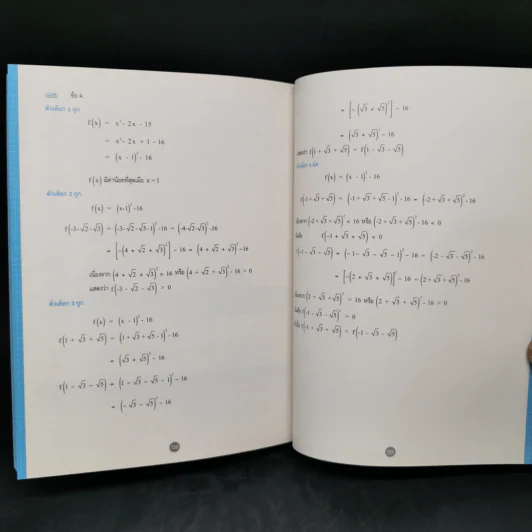 ข้อ 4.
ตัวเลือก 1 ถูก
f(x) = x² - 2x - 15
= x² - 2x + 1 - 16
= (x - 1)² - 16
f(x) มีค่าน้อยที่สุดเมื่อ x = 1
ตัวเลือก 2 ถูก
f(x) = (x-1)² - 16
f(-3-√2-√3) = (-3-√2-√3-1)²-16 = (-4-√2-√3)²-16
= [-(4 + √2 + √3)]² - 16 = (4 + √2 + √3)² - 16
เนื่องจาก (4 + √2 + √3)² > 16 หรือ (4 + √2 + √3)² - 16 > 0
แสดงว่า f(-3 - √2 - √3) > 0
ตัวเลือก 3 ถูก
f(x) = (x - 1)² - 16
f(1 + √3 + √5) = (1 + √3 + √5 - 1)² - 16
= (√3 + √5)² - 16
f(1 - √3 - √5) = (1 - √3 - √5 - 1)² - 16
= (-√3 - √5)² - 16
= [-(√3 + √5)²] - 16
= (√3 + √5)² - 16
แสดงว่า f(1 + √3 + √5) = f(1 - √3 - √5)
ตัวเลือก 4 ผิด
f(x) = (x - 1)² - 16
f(-1 + √3 + √5) = (-1 + √3 + √5 - 1)² - 16 = (-2 + √3 + √5)² - 16
เนื่องจาก (-2 + √3 + √5)² < 16 หรือ (-2 + √3 + √5)² - 16 < 0
นั่นคือ f(-1 + √3 + √5) < 0
f(-1 - √3 - √5) = (-1 - √3 - √5 - 1)² - 16 = (-2 - √3 - √5)² - 16
= [-(2 + √3 + √5)]² - 16 = (2 + √3 + √5)² - 16
เนื่องจาก (2 + √3 + √5)² > 16 หรือ (2 + √3 + √5)² - 16 > 0
นั่นคือ f(-1 - √3 - √5) > 0
f(-1 + √3 + √5) f(-1 - √3 - √5)